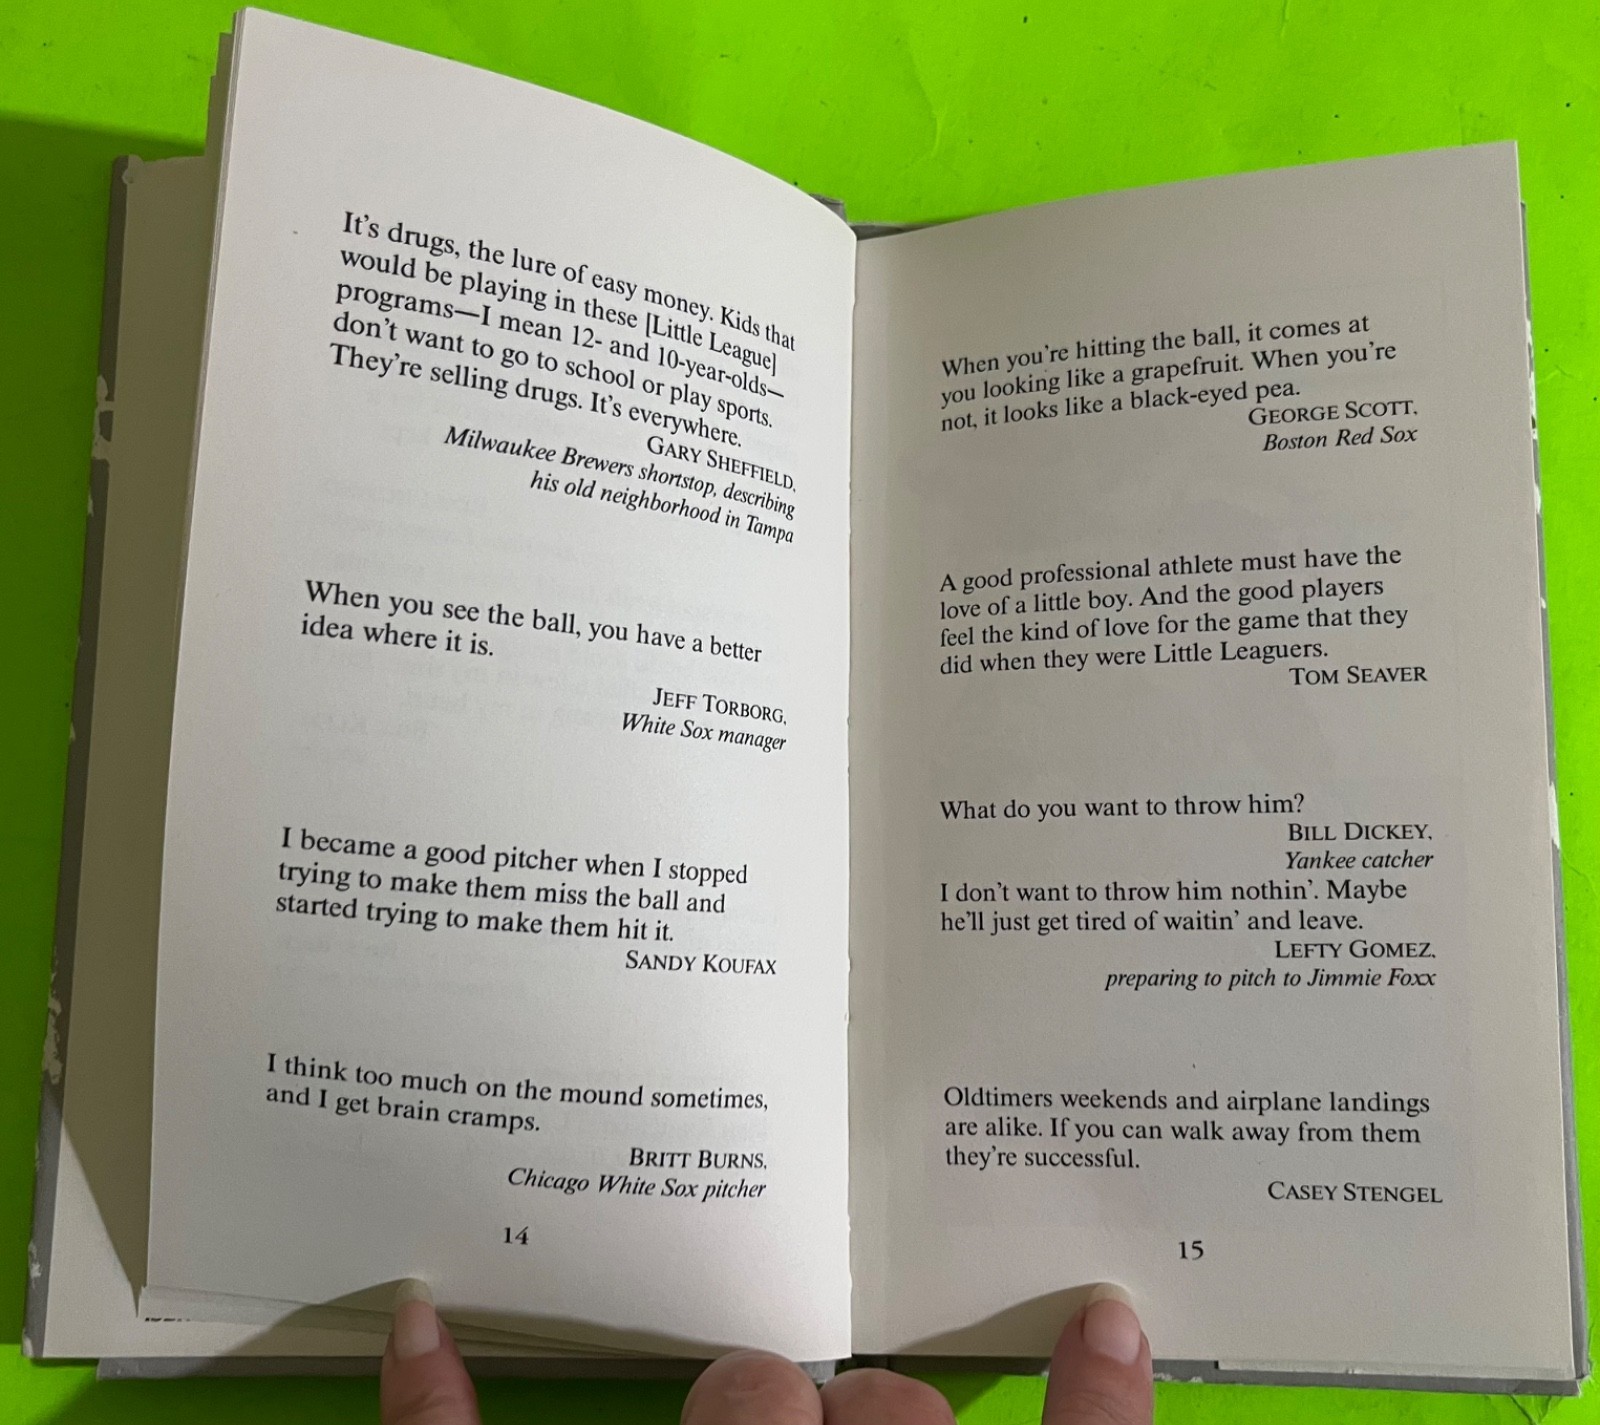 It's drugs, the lure of easy money. Kids that
would be playing in these [Little League]
programs—I mean 12- and 10-year-olds—
don't want to go to school or play sports.
They're selling drugs. It's everywhere.
GARY SHEFFIELD,
Milwaukee Brewers shortstop, describing
his old neighborhood in Tampa
When you see the ball, you have a better
idea where it is.
JEFF TORBORG,
White Sox manager
I became a good pitcher when I stopped
trying to make them miss the ball and
started trying to make them hit it.
SANDY KOUFAX
I think too much on the mound sometimes,
and I get brain cramps.
BRITT BURNS,
Chicago White Sox pitcher
14
When you're hitting the ball, it comes at
you looking like a grapefruit. When you're
not, it looks like a black-eyed pea.
GEORGE SCOTT,
Boston Red Sox
A good professional athlete must have the
love of a little boy. And the good players
feel the kind of love for the game that they
did when they were Little Leaguers.
TOM SEAVER
What do you want to throw him?
BILL DICKEY,
Yankee catcher
I don't want to throw him nothin'. Maybe
he'll just get tired of waitin' and leave.
LEFTY GOMEZ,
preparing to pitch to Jimmie Foxx
Oldtimers weekends and airplane landings
are alike. If you can walk away from them
they're successful.
CASEY STENGEL
15